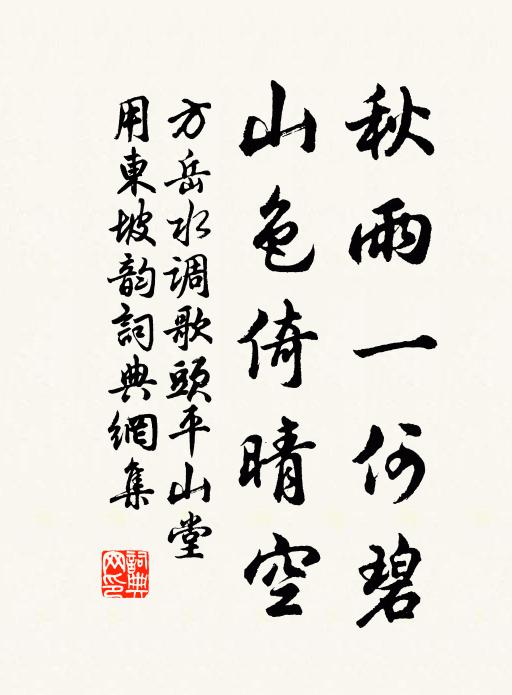 秋雨一何碧
山色倚晴空
方岳水调歌頭平山堂
用東坡韵詞典網集
詞典
网印